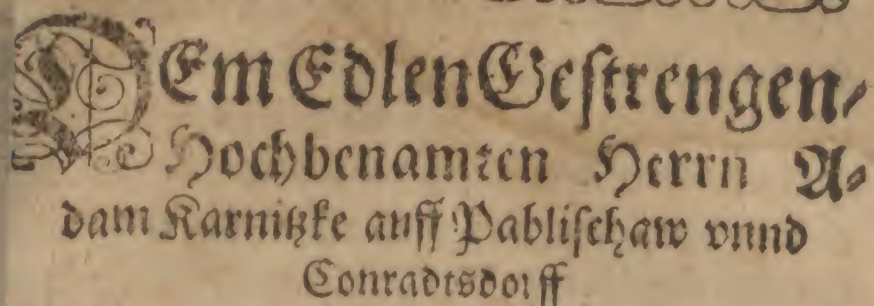 DEm Edlen Gestrengen/
Hochbenamten Herrn A⸗
dam Karnitzke auff Pablischaw vnnd
Conradtsdorff